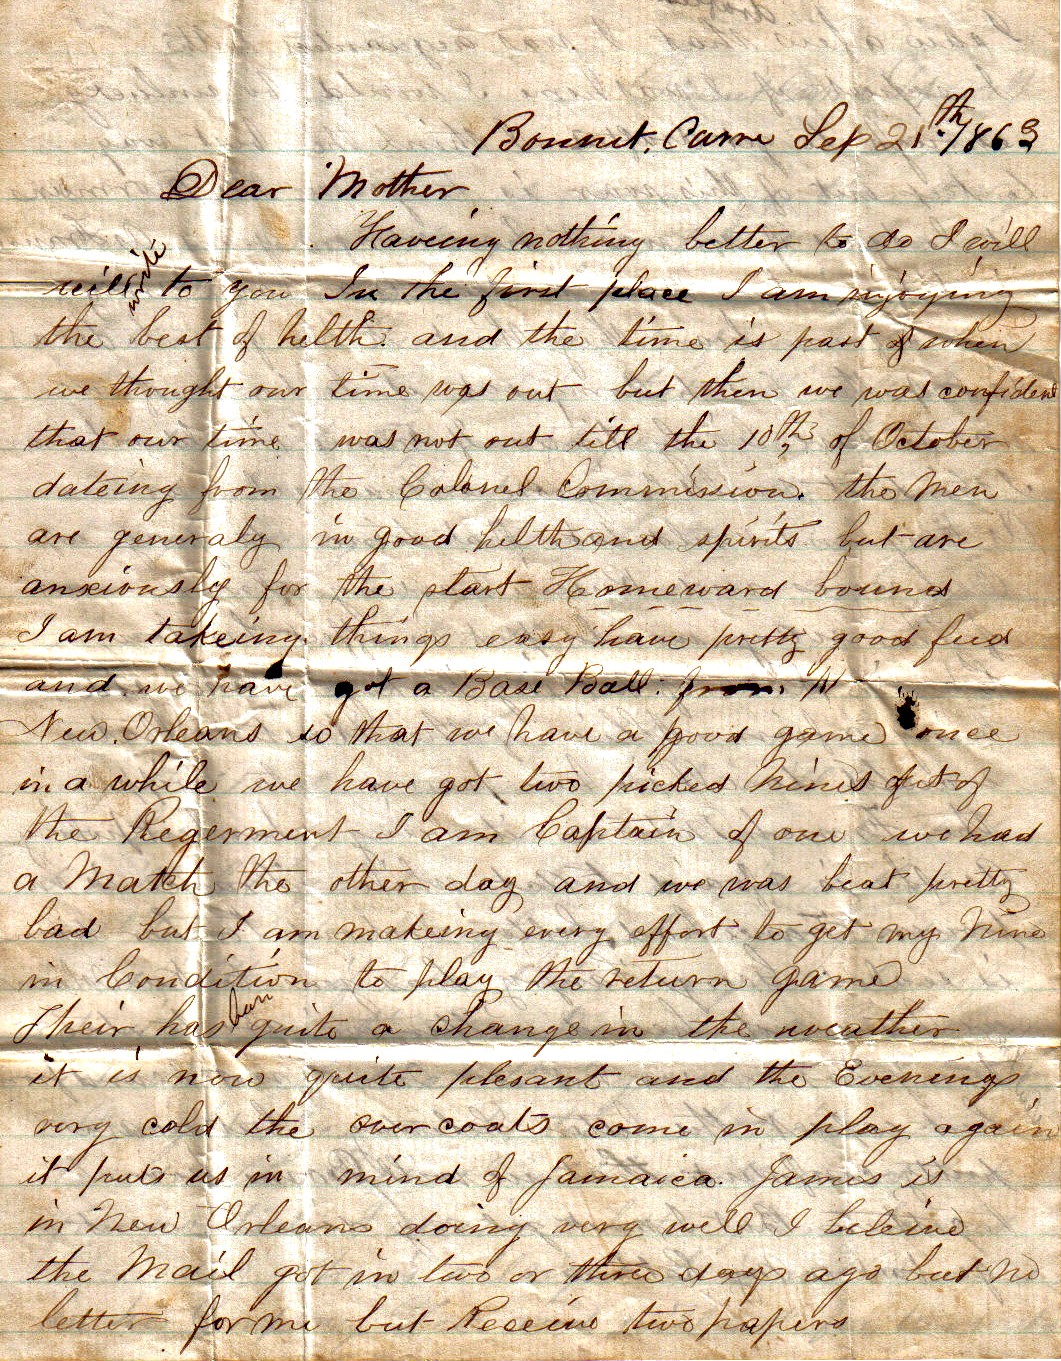 Bonnet. Carre Sep 21th /1863
Dear Mother
Haveing nothing better to do I will
will write to you In the first place I am injoying
the best of helth. and the time is past of when
we thought our time was out but then we was confident
that our time was not out till the 10th of October
dateing from the Colonel Commission. the men
are generaly in good helth and spirits but are
anxiously for the start Homeward bound
I am takeing things easy have pretty good feed
and we have got a Base Ball. from N
New. Orleans so that we have a good game once
in a while we have got two picked Nines out of
the Regerment I am Captain of one we had
a Match the other day and we was beat pretty
bad but I am makeing every effort to get my Nine
in Condition to play the return game
Their has ban quite a change in the weather
it is now quite plesant and the Evenings
very cold the over coats come in play again
it puts us in mind of Jamaica. James is
in New Orleans doing very well I beleive
the Mail got in two or three days ago but no
letter for me but Receive two papers